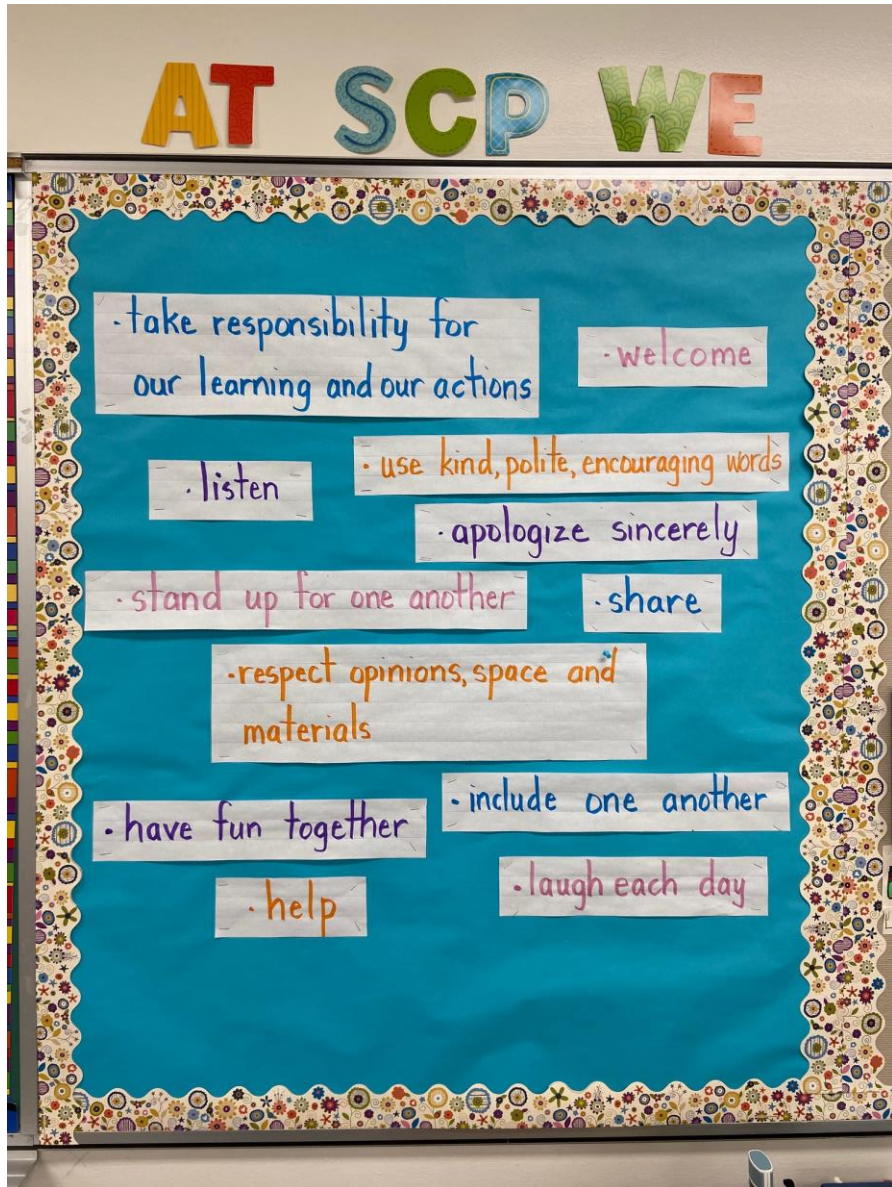 AT SCP WE
· take responsibility for
our learning and our actions
· welcome
· listen
· use kind, polite, encouraging words
· apologize sincerely
· stand up for one another
· share
· respect opinions, space and
materials
· include one another
· have fun together
· laugh each day
· help